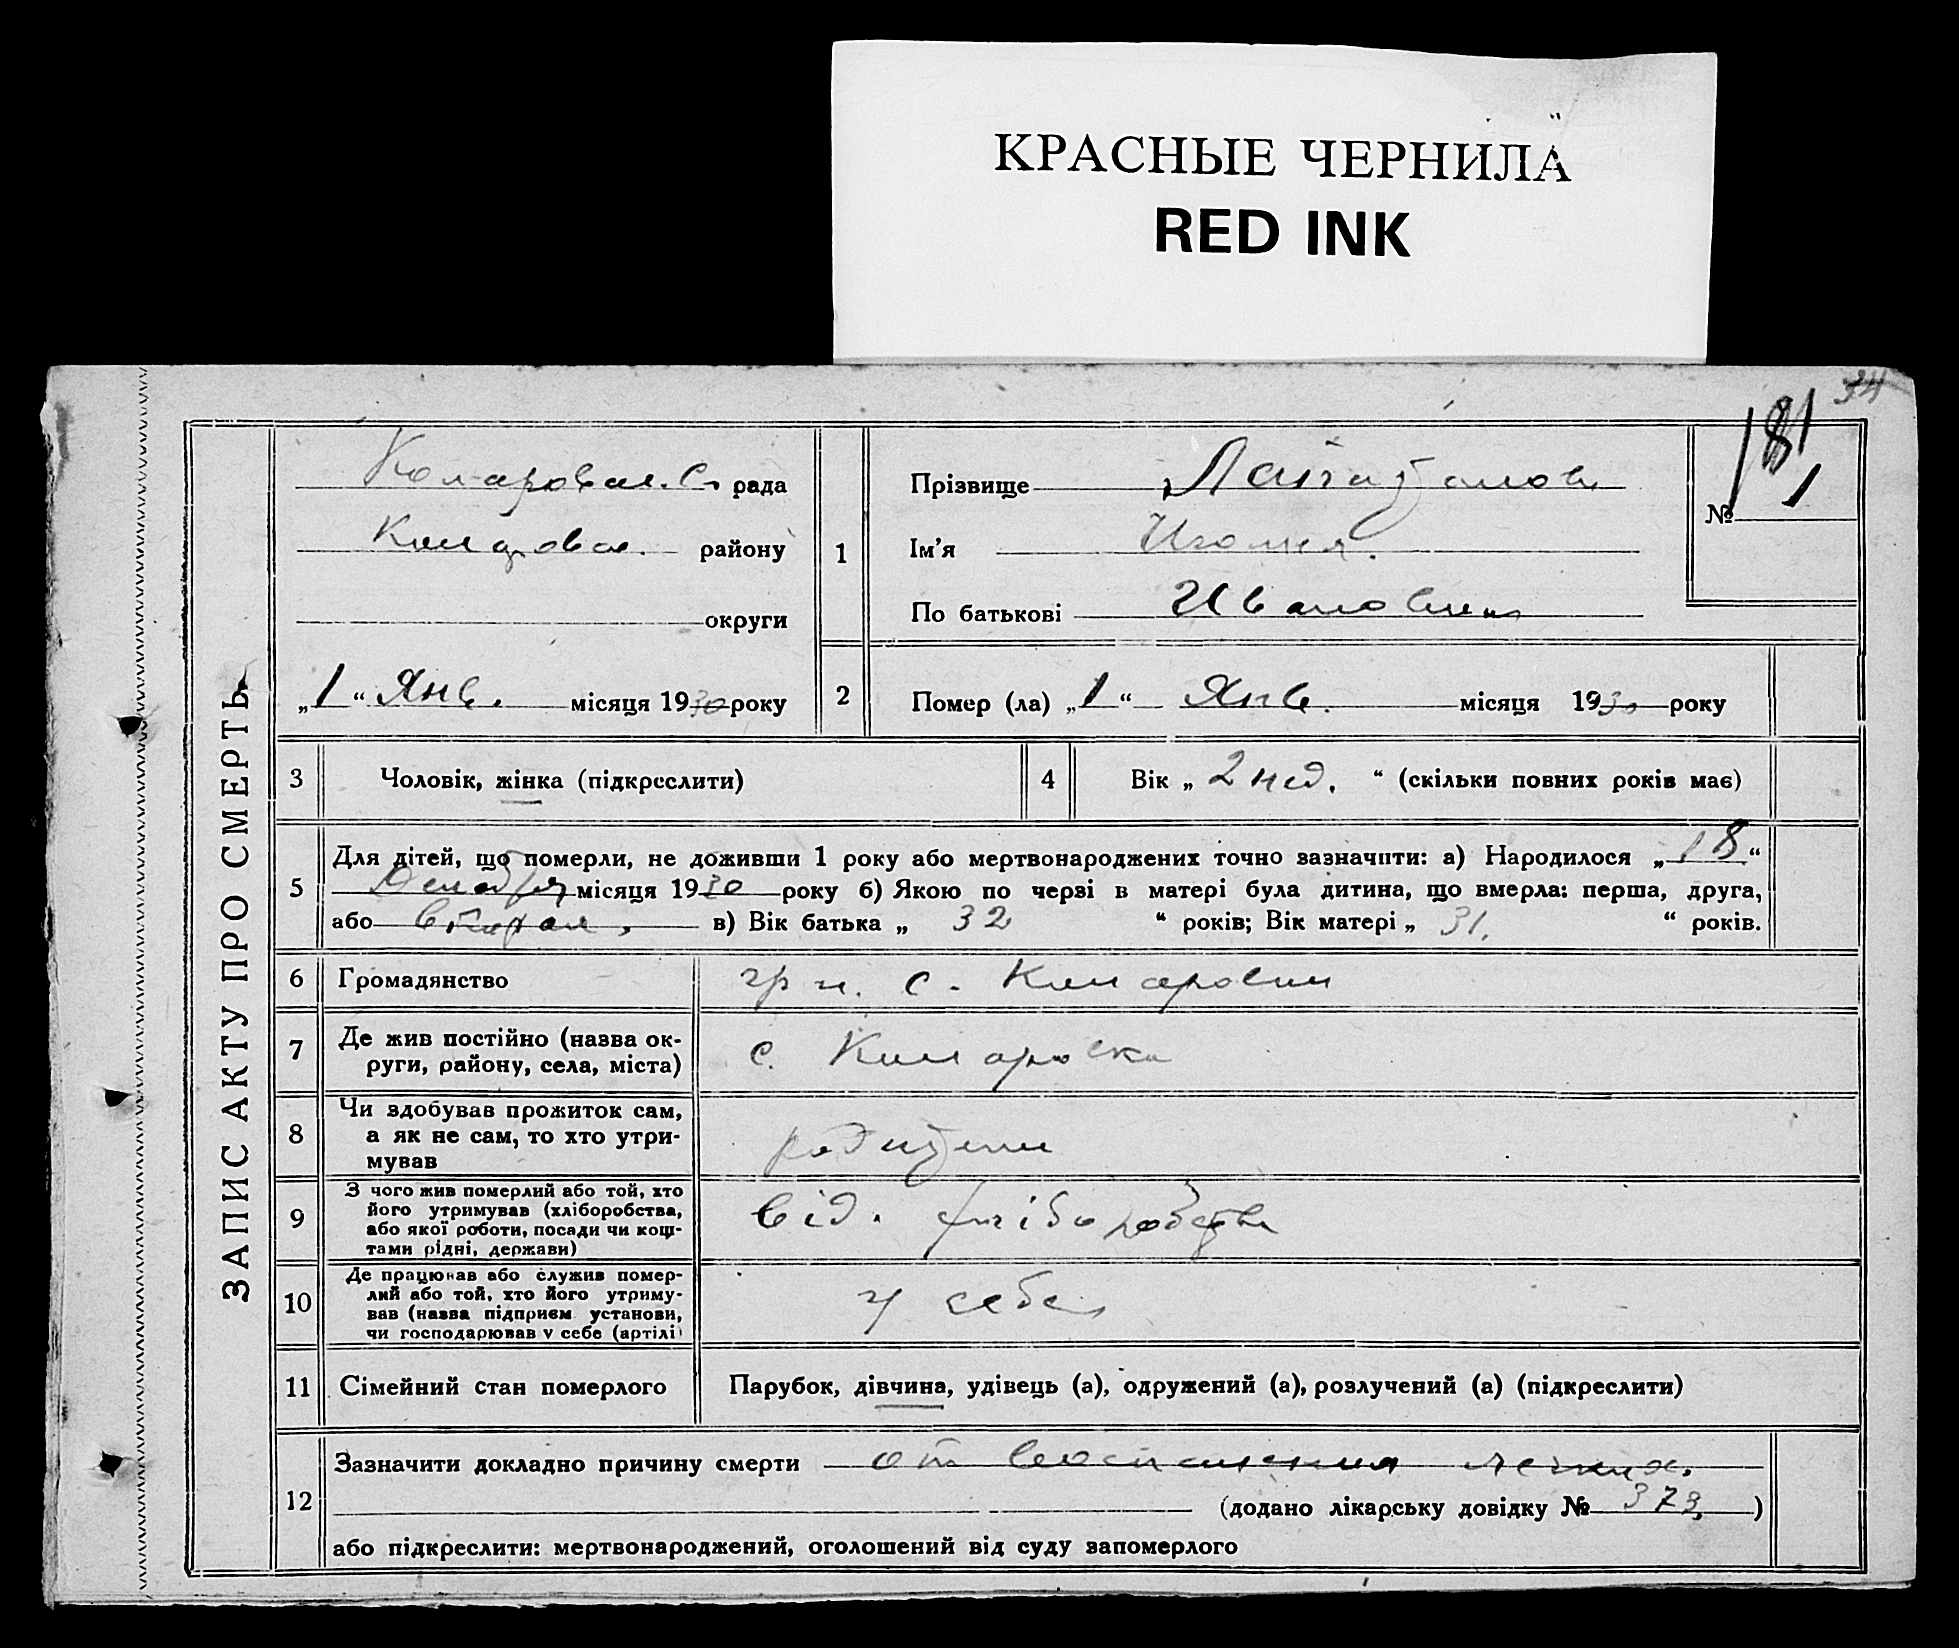 КРАСНЫЕ ЧЕРНИЛА
RED INK
34
181
ЗАПИС АКТУ ПРО СМЕРТЬ
рада
району
округи
„1“ Янв. місяця 1930 року
1
Прізвище
Ім'я
По батькові
№
2
Помер (ла) „1“ Янв. місяця 1930 року
3
Чоловік, жінка (підкреслити)
4
Вік „ 2 нед. “ (скільки повних років має)
5
Для дітей, що померли, не доживши 1 року або мертвонароджених точно зазначити: а) Народилося „18“
Декабря місяця 1930 року б) Якою по черзі в матері була дитина, що вмерла: перша, друга,
або вторая, в) Вік батька „ 32 “ років; Вік матері „ 31. “ років.
6
Громадянство
с. Комаровки
7
Де жив постійно (назва ок-
руги, району, села, міста)
с. Комаровка
8
Чи здобував прожиток сам,
а як не сам, то хто утри-
мував
родители
9
З чого жив померлий або той, хто
його утримував (хліборобства,
або якої роботи, посади чи кош-
тами рідні, держави)
від. хліборобства
10
Де працював або служив помер-
лий або той, хто його утриму-
вав (назва підприєм. установи,
чи господарював у себе (артілі)
у себе
11
Сімейний стан померлого
Парубок, дівчина, удівець (а), одружений (а), розлучений (а) (підкреслити)
12
Зазначити докладно причину смерти от воспаления легких.
(додано лікарську довідку № 373 )
або підкреслити: мертвонароджений, оголошений від суду запомерлого